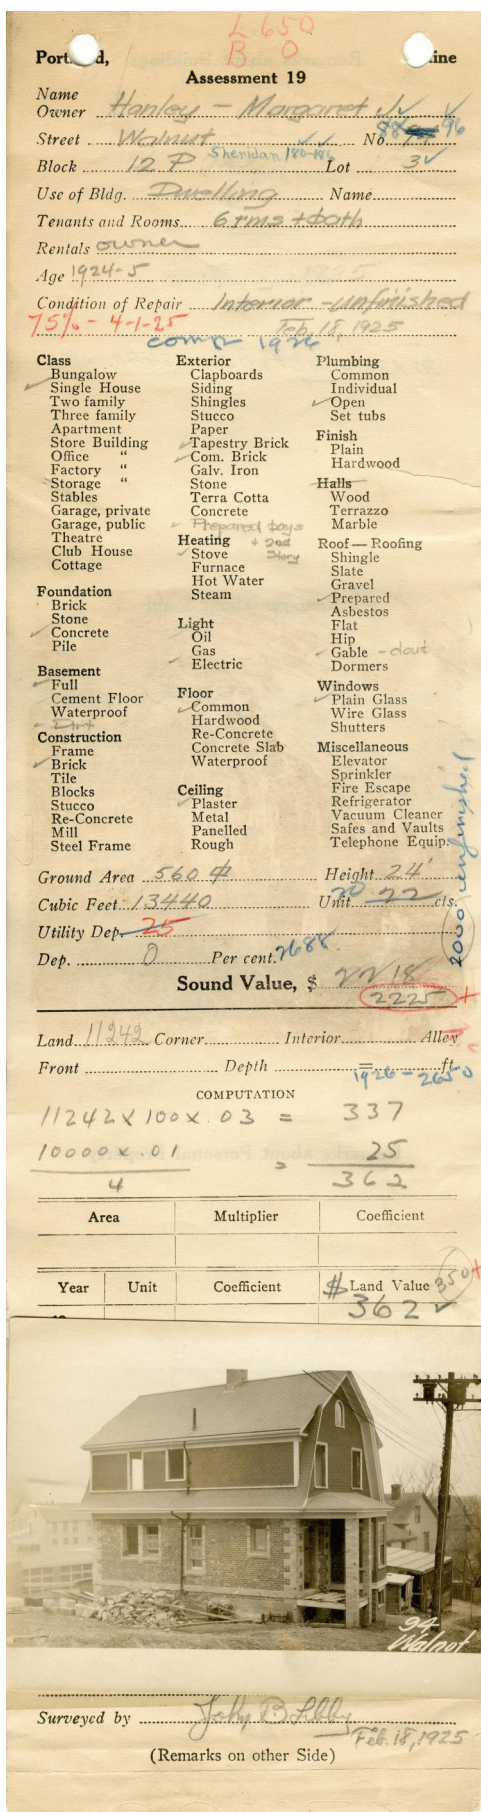 L 650
B 0
Portland, Maine
Assessment 19
Name
Owner Hanley - Margaret J.
Street Walnut No. 88 96
Block 12 P Sheridan 180-186 Lot 3
Use of Bldg. Dwelling Name
Tenants and Rooms 6 rms + bath
Rentals owner
Age 1924-5
Condition of Repair Interior - unfinished
75% - 4-1-25 Feb. 18, 1925
comp 1926
Class
Bungalow
Single House
Two family
Three family
Apartment
Store Building
Office "
Factory "
Storage "
Stables
Garage, private
Garage, public
Theatre
Club House
Cottage
Foundation
Brick
Stone
Concrete
Pile
Basement
Full
Cement Floor
Waterproof
Construction
Frame
Brick
Tile
Blocks
Stucco
Re-Concrete
Mill
Steel Frame
Exterior
Clapboards
Siding
Shingles
Stucco
Paper
Tapestry Brick
Com. Brick
Galv. Iron
Stone
Terra Cotta
Concrete
Prepared bays
+ 2nd
Story
Heating
Stove
Furnace
Hot Water
Steam
Light
Oil
Gas
Electric
Floor
Common
Hardwood
Re-Concrete
Concrete Slab
Waterproof
Ceiling
Plaster
Metal
Panelled
Rough
Plumbing
Common
Individual
Open
Set tubs
Finish
Plain
Hardwood
Halls
Wood
Terrazzo
Marble
Roof — Roofing
Shingle
Slate
Gravel
Prepared
Asbestos
Flat
Hip
Gable
Dormers
Windows
Plain Glass
Wire Glass
Shutters
Miscellaneous
Elevator
Sprinkler
Fire Escape
Refrigerator
Vacuum Cleaner
Safes and Vaults
Telephone Equip.
2000 unfinished
Ground Area 560 Height 24'
Cubic Feet 13440 Unit 20 22 cts.
Utility Dep. 25
Dep. 0 Per cent. 2688
Sound Value, $ 2218
2225 +
Land 11242 Corner Interior Alley
Front Depth = ft.
1926 - 2650
COMPUTATION
11242 x 100 x .03 = 337
10000 x .01 = 25
4 362
Area Multiplier Coefficient
Year Unit Coefficient $ Land Value 350 +
362
94
Walnut
Surveyed by John B Libby
Feb. 18, 1925
(Remarks on other Side)